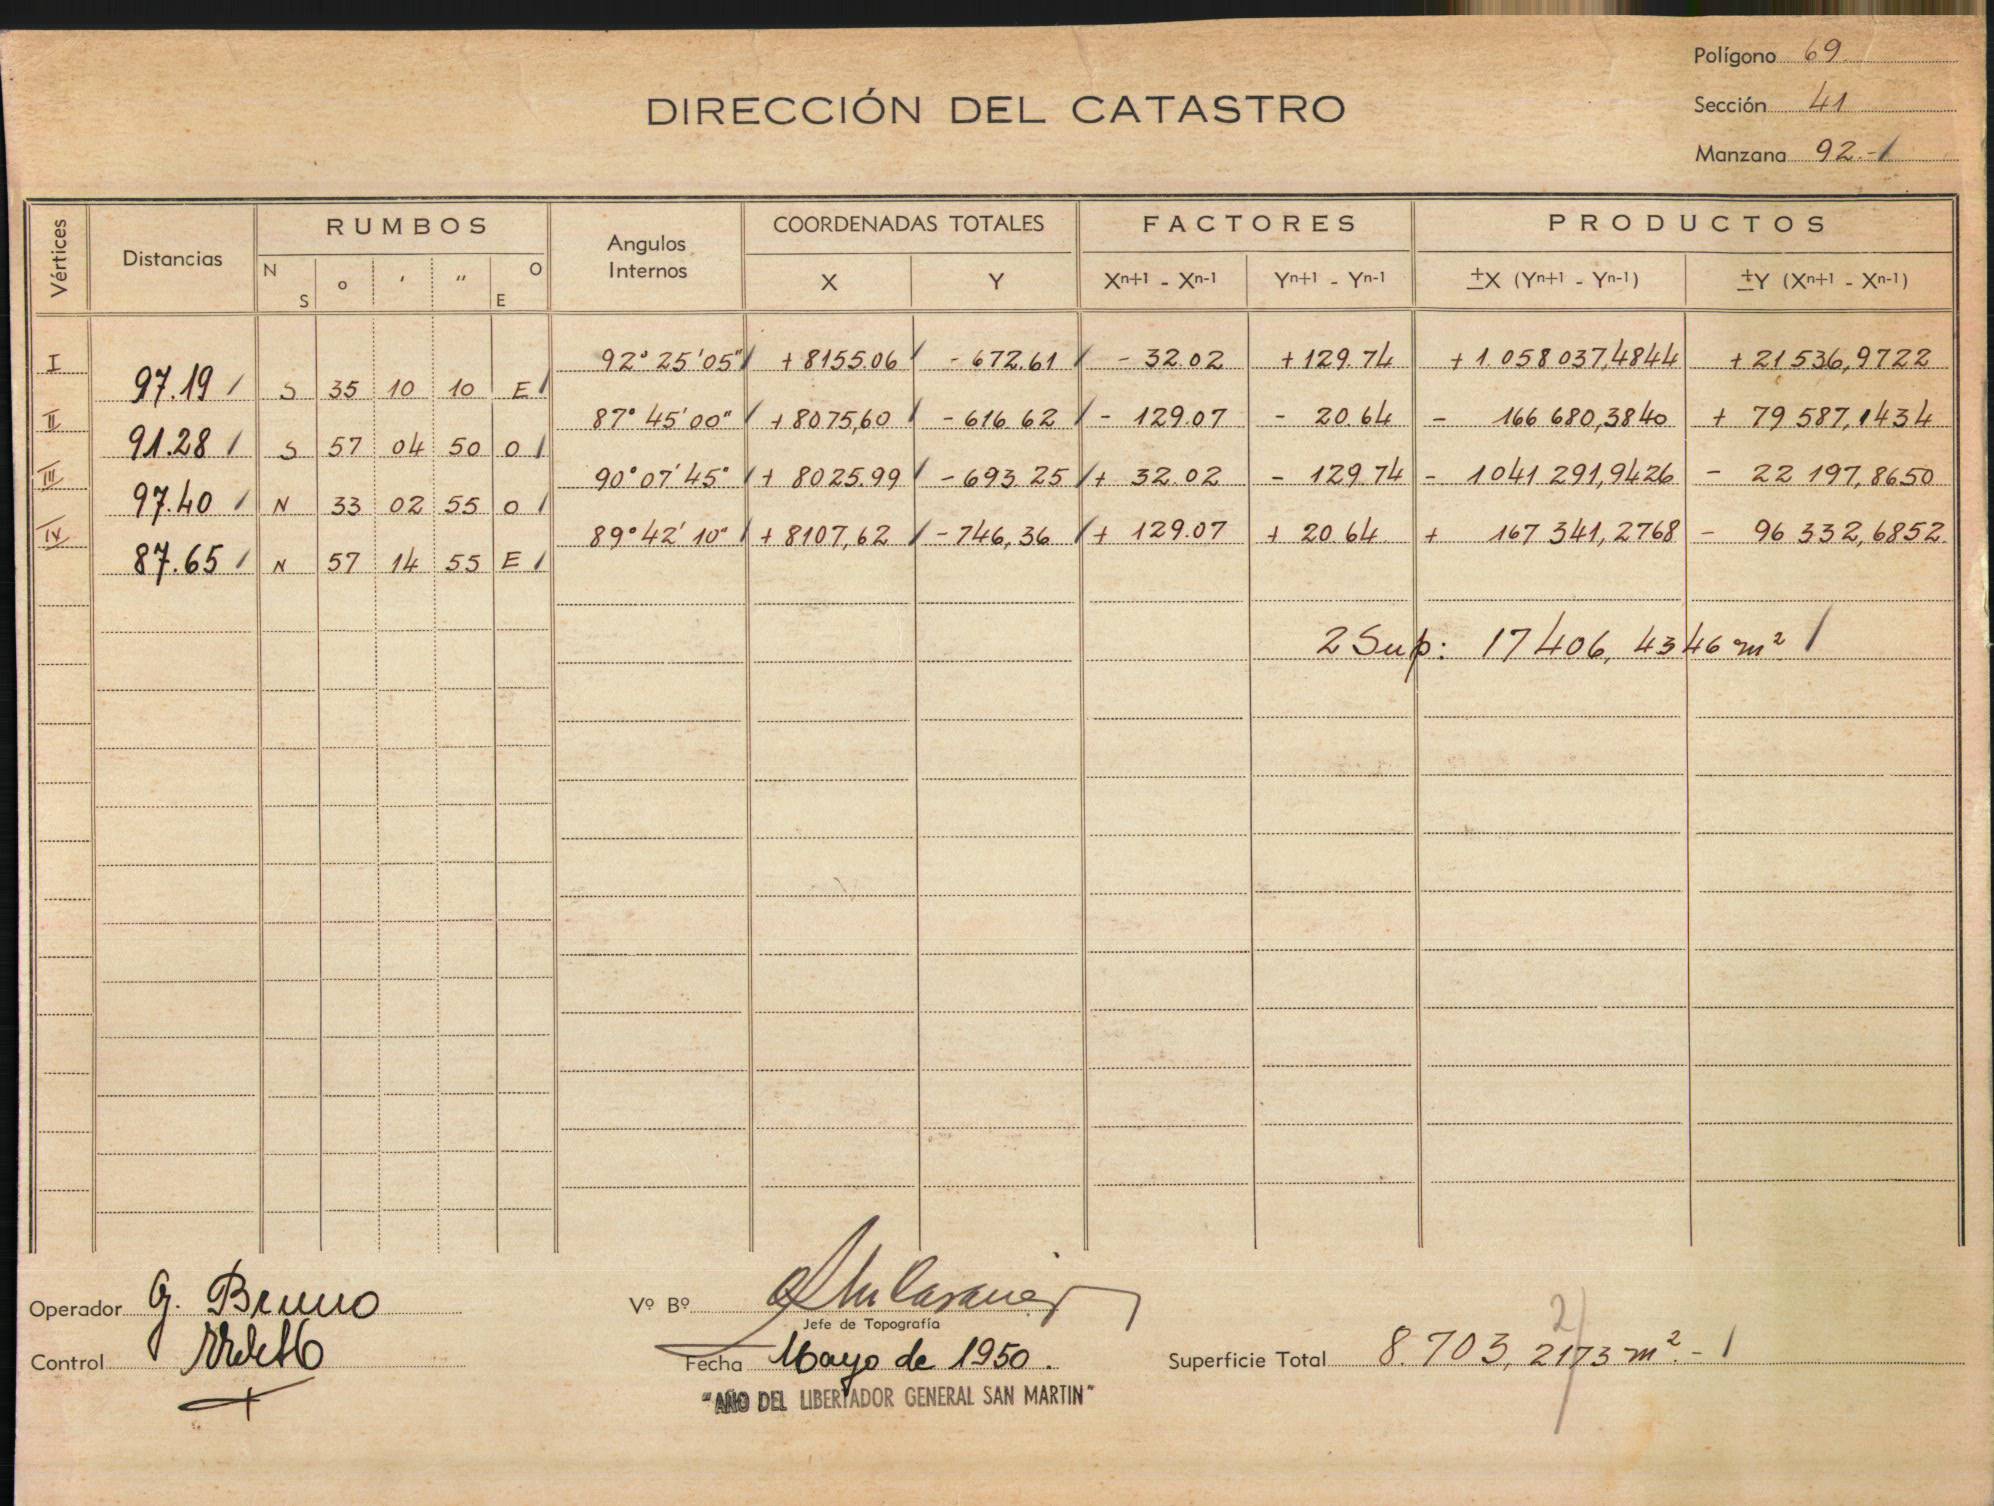 Polígono 69
DIRECCIÓN DEL CATASTRO
Sección 41
Manzana 92.-
Vértices Distancias RUMBOS Angulos Internos COORDENADAS TOTALES FACTORES PRODUCTOS
N S ° ' " O E X Y Xn+1 - Xn-1 Yn+1 - Yn-1 ±X (Yn+1 - Yn-1) ±Y (Xn+1 - Xn-1)
I 92° 25' 05" + 8155.06 - 672.61 - 32.02 + 129.74 + 1.058 037,4844 + 21 536,9722
97.19 S 35 10 10 E
II 87° 45' 00" + 8075,60 - 616.62 - 129.07 - 20.64 - 166 680,3840 + 79 587,1434
91.28 S 57 04 50 O
III 90° 07' 45" + 8025.99 - 693.25 + 32.02 - 129.74 - 1041 291,9426 - 22 197,8650
97.40 N 33 02 55 O
IV 89° 42' 10" + 8107,62 - 746,36 + 129.07 + 20.64 + 167 341,2768 - 96 332,6852
87.65 N 57 14 55 E
2 Sup: 17 406, 4346 m²
Operador G. Bruno
Vº Bº
Jefe de Topografía
Control
Fecha Mayo de 1950.
Superficie Total 8.703, 2173 m².-
"AÑO DEL LIBERTADOR GENERAL SAN MARTIN"